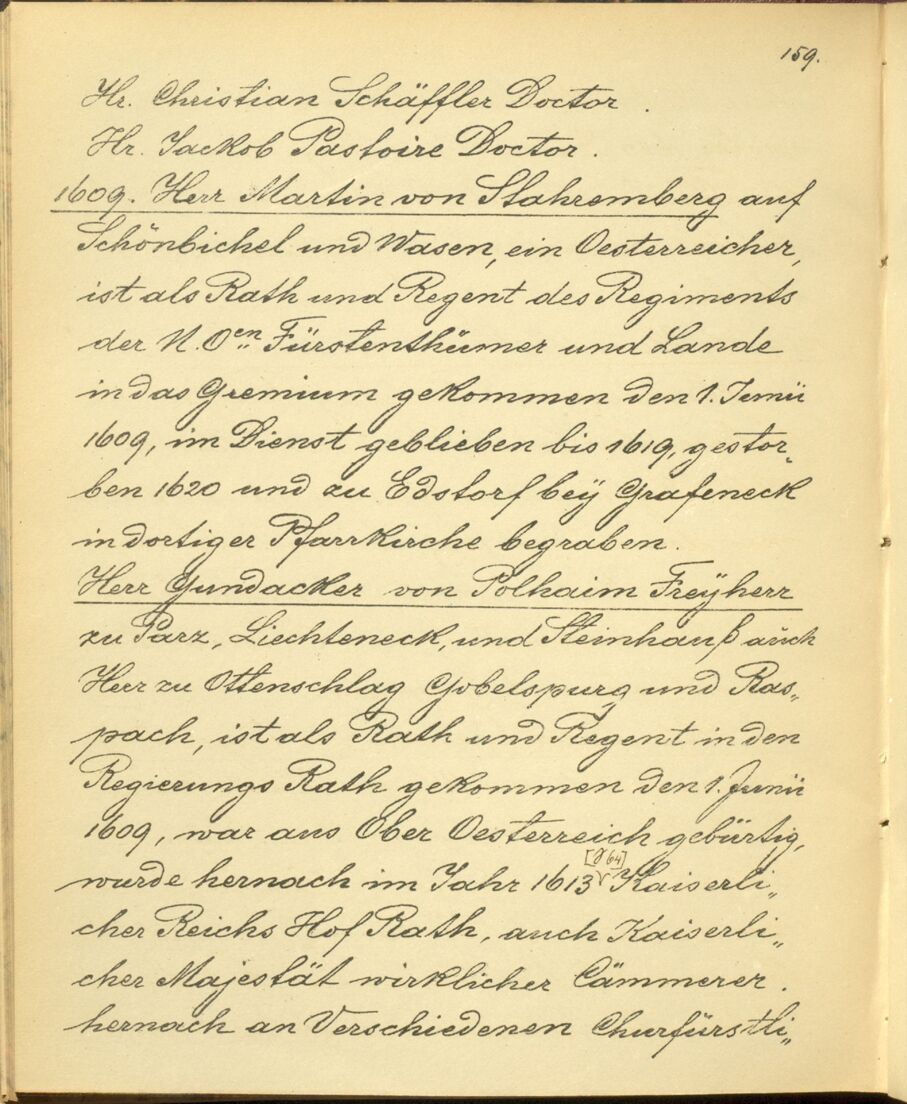 159.
Hr. Christian Schäffler Doctor.
Hr. Jackob Pastoire Doctor.
1609. Herr Martin von Stahremberg auf
Schönbichel und Wasen, ein Oesterreicher,
ist als Rath und Regent des Regiments
der N. Oen. Fürstenthümer und Lande
in das Gremium gekommen den 1. Junii
1609, im Dienst geblieben bis 1619, gestor„
ben 1620 und zu Edstorf beÿ Grafeneck
in dortiger Pfarrkirche begraben.
Herr Gundacker von Polhaim Freÿherr
zu Parz, Liechteneck, und Steinhauß auch
Herr zu Ottenschlag Gobelspurg und Ras„
pach, ist als Rath und Regent in den
Regierungs Rath gekommen den 1. Junii
1609, war aus Ober Oesterreich gebürtig,
[64]
wurde hernach im Jahr 1613 Kaiserli„
cher Reichs Hof Rath, auch Kaiserli„
cher Majestät wirklicher Cämmerer.
hernach an Verschiedenen Churfürstli„